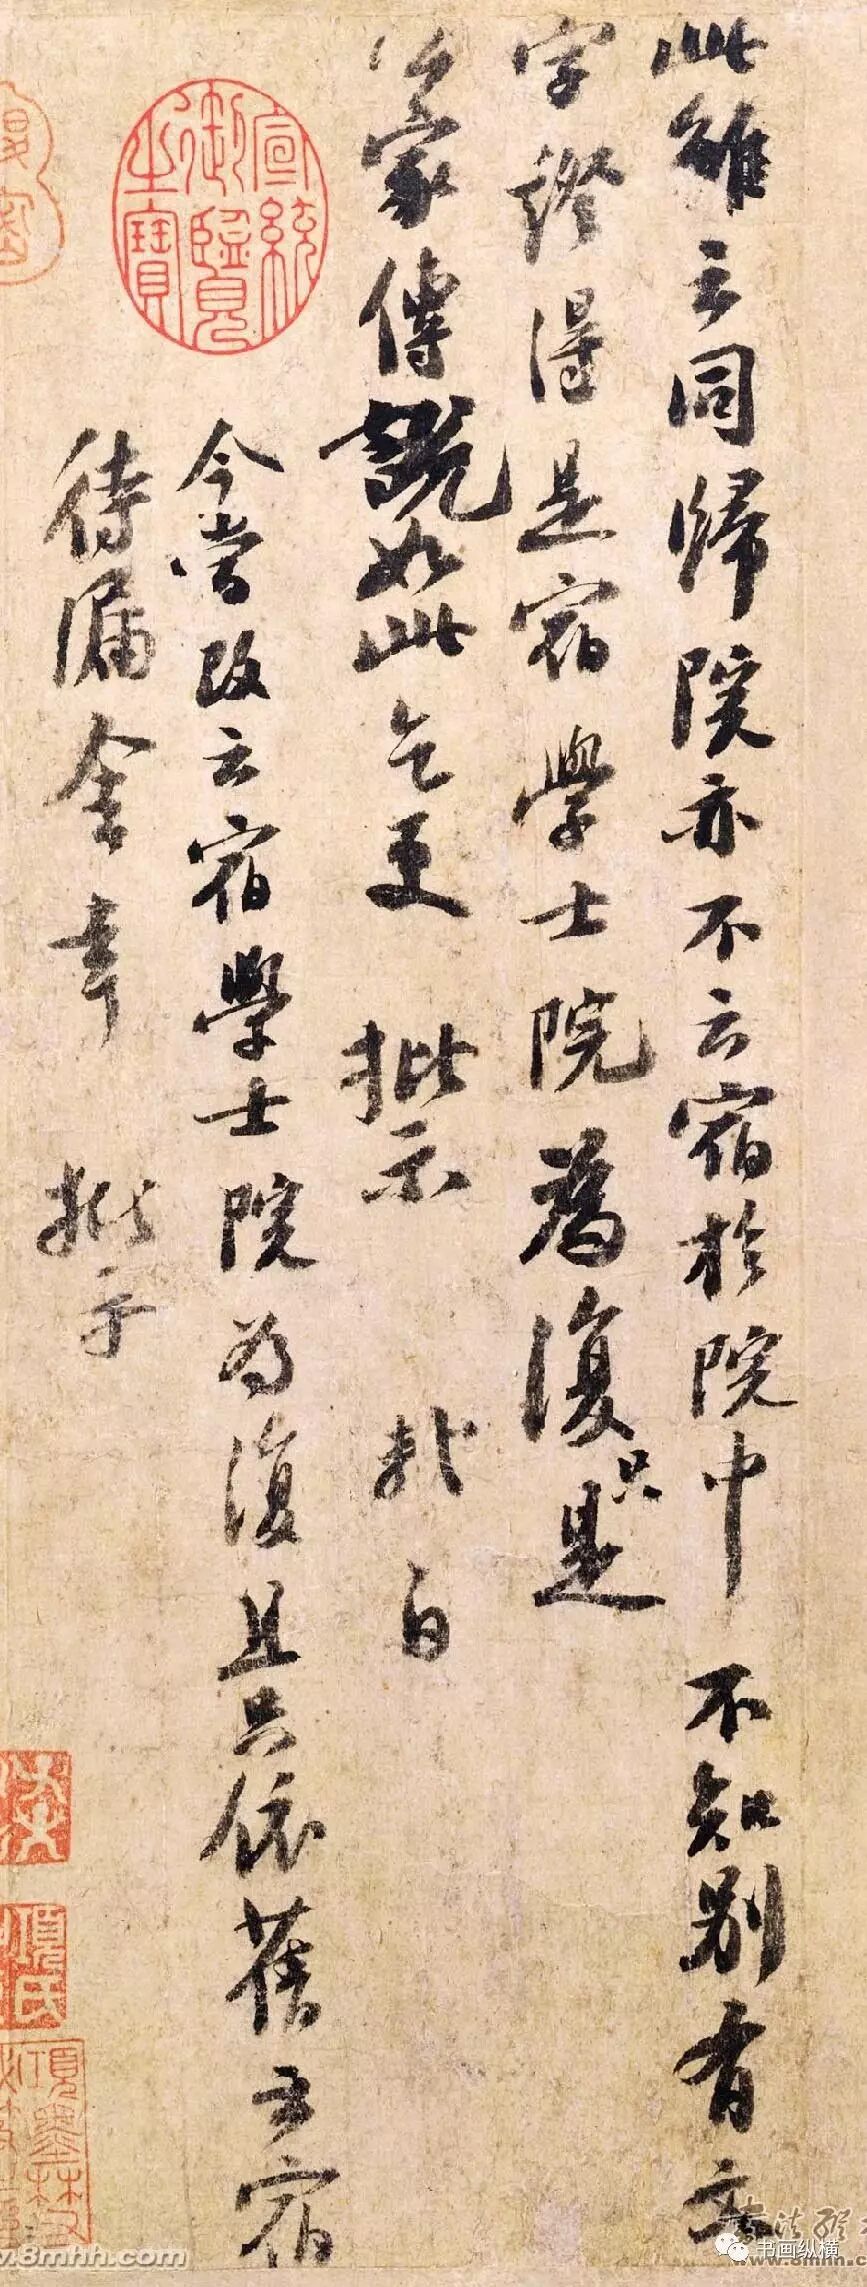 此雖云同歸院亦不云宿於院中不知別有文
字證得是宿學士院為復只是
公家傳說如此乞更批示 棐白
今當改云宿學士院為復且只依舊云宿
待漏舍幸批示
宣統御覽之寶
項氏
书画纵横
www.8mhh.com